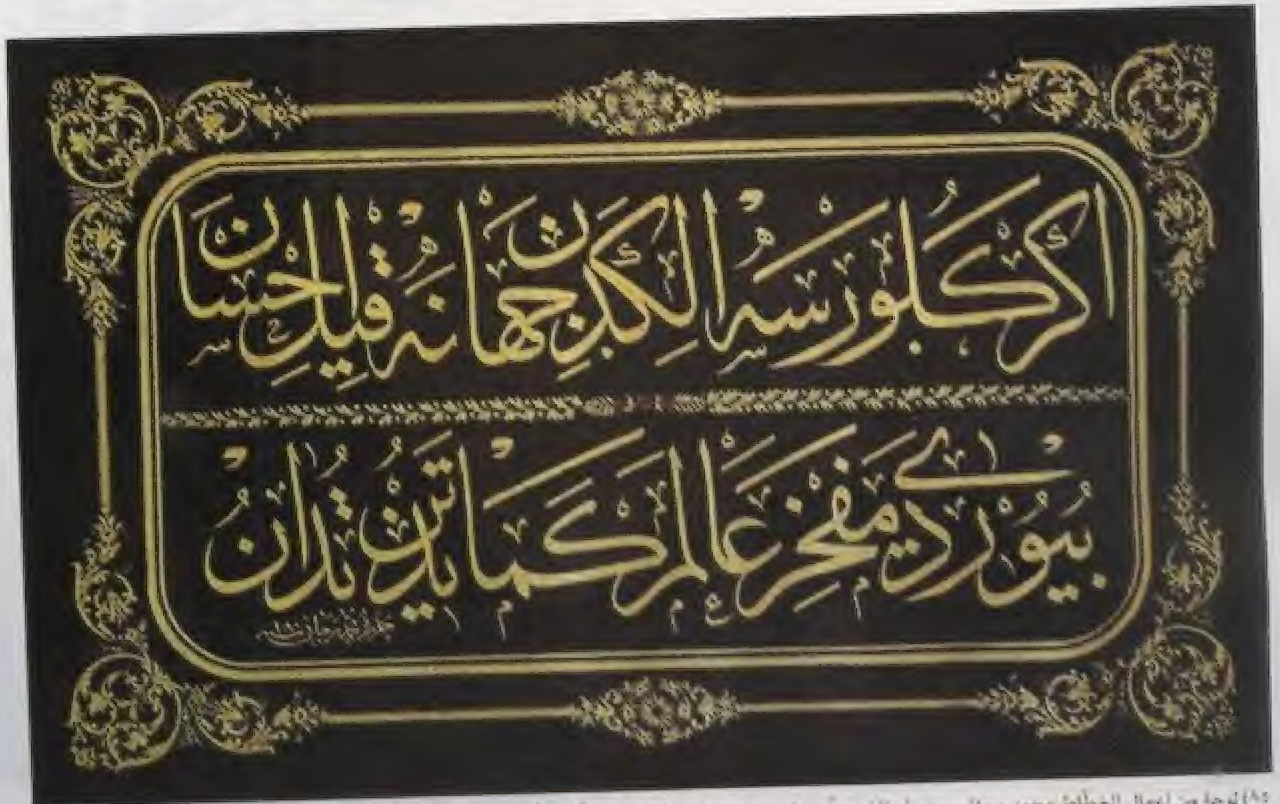 اكر كلورسه الكدن جهانه قيل احسان
بيوردى مفخر عالم كما تدين تدان